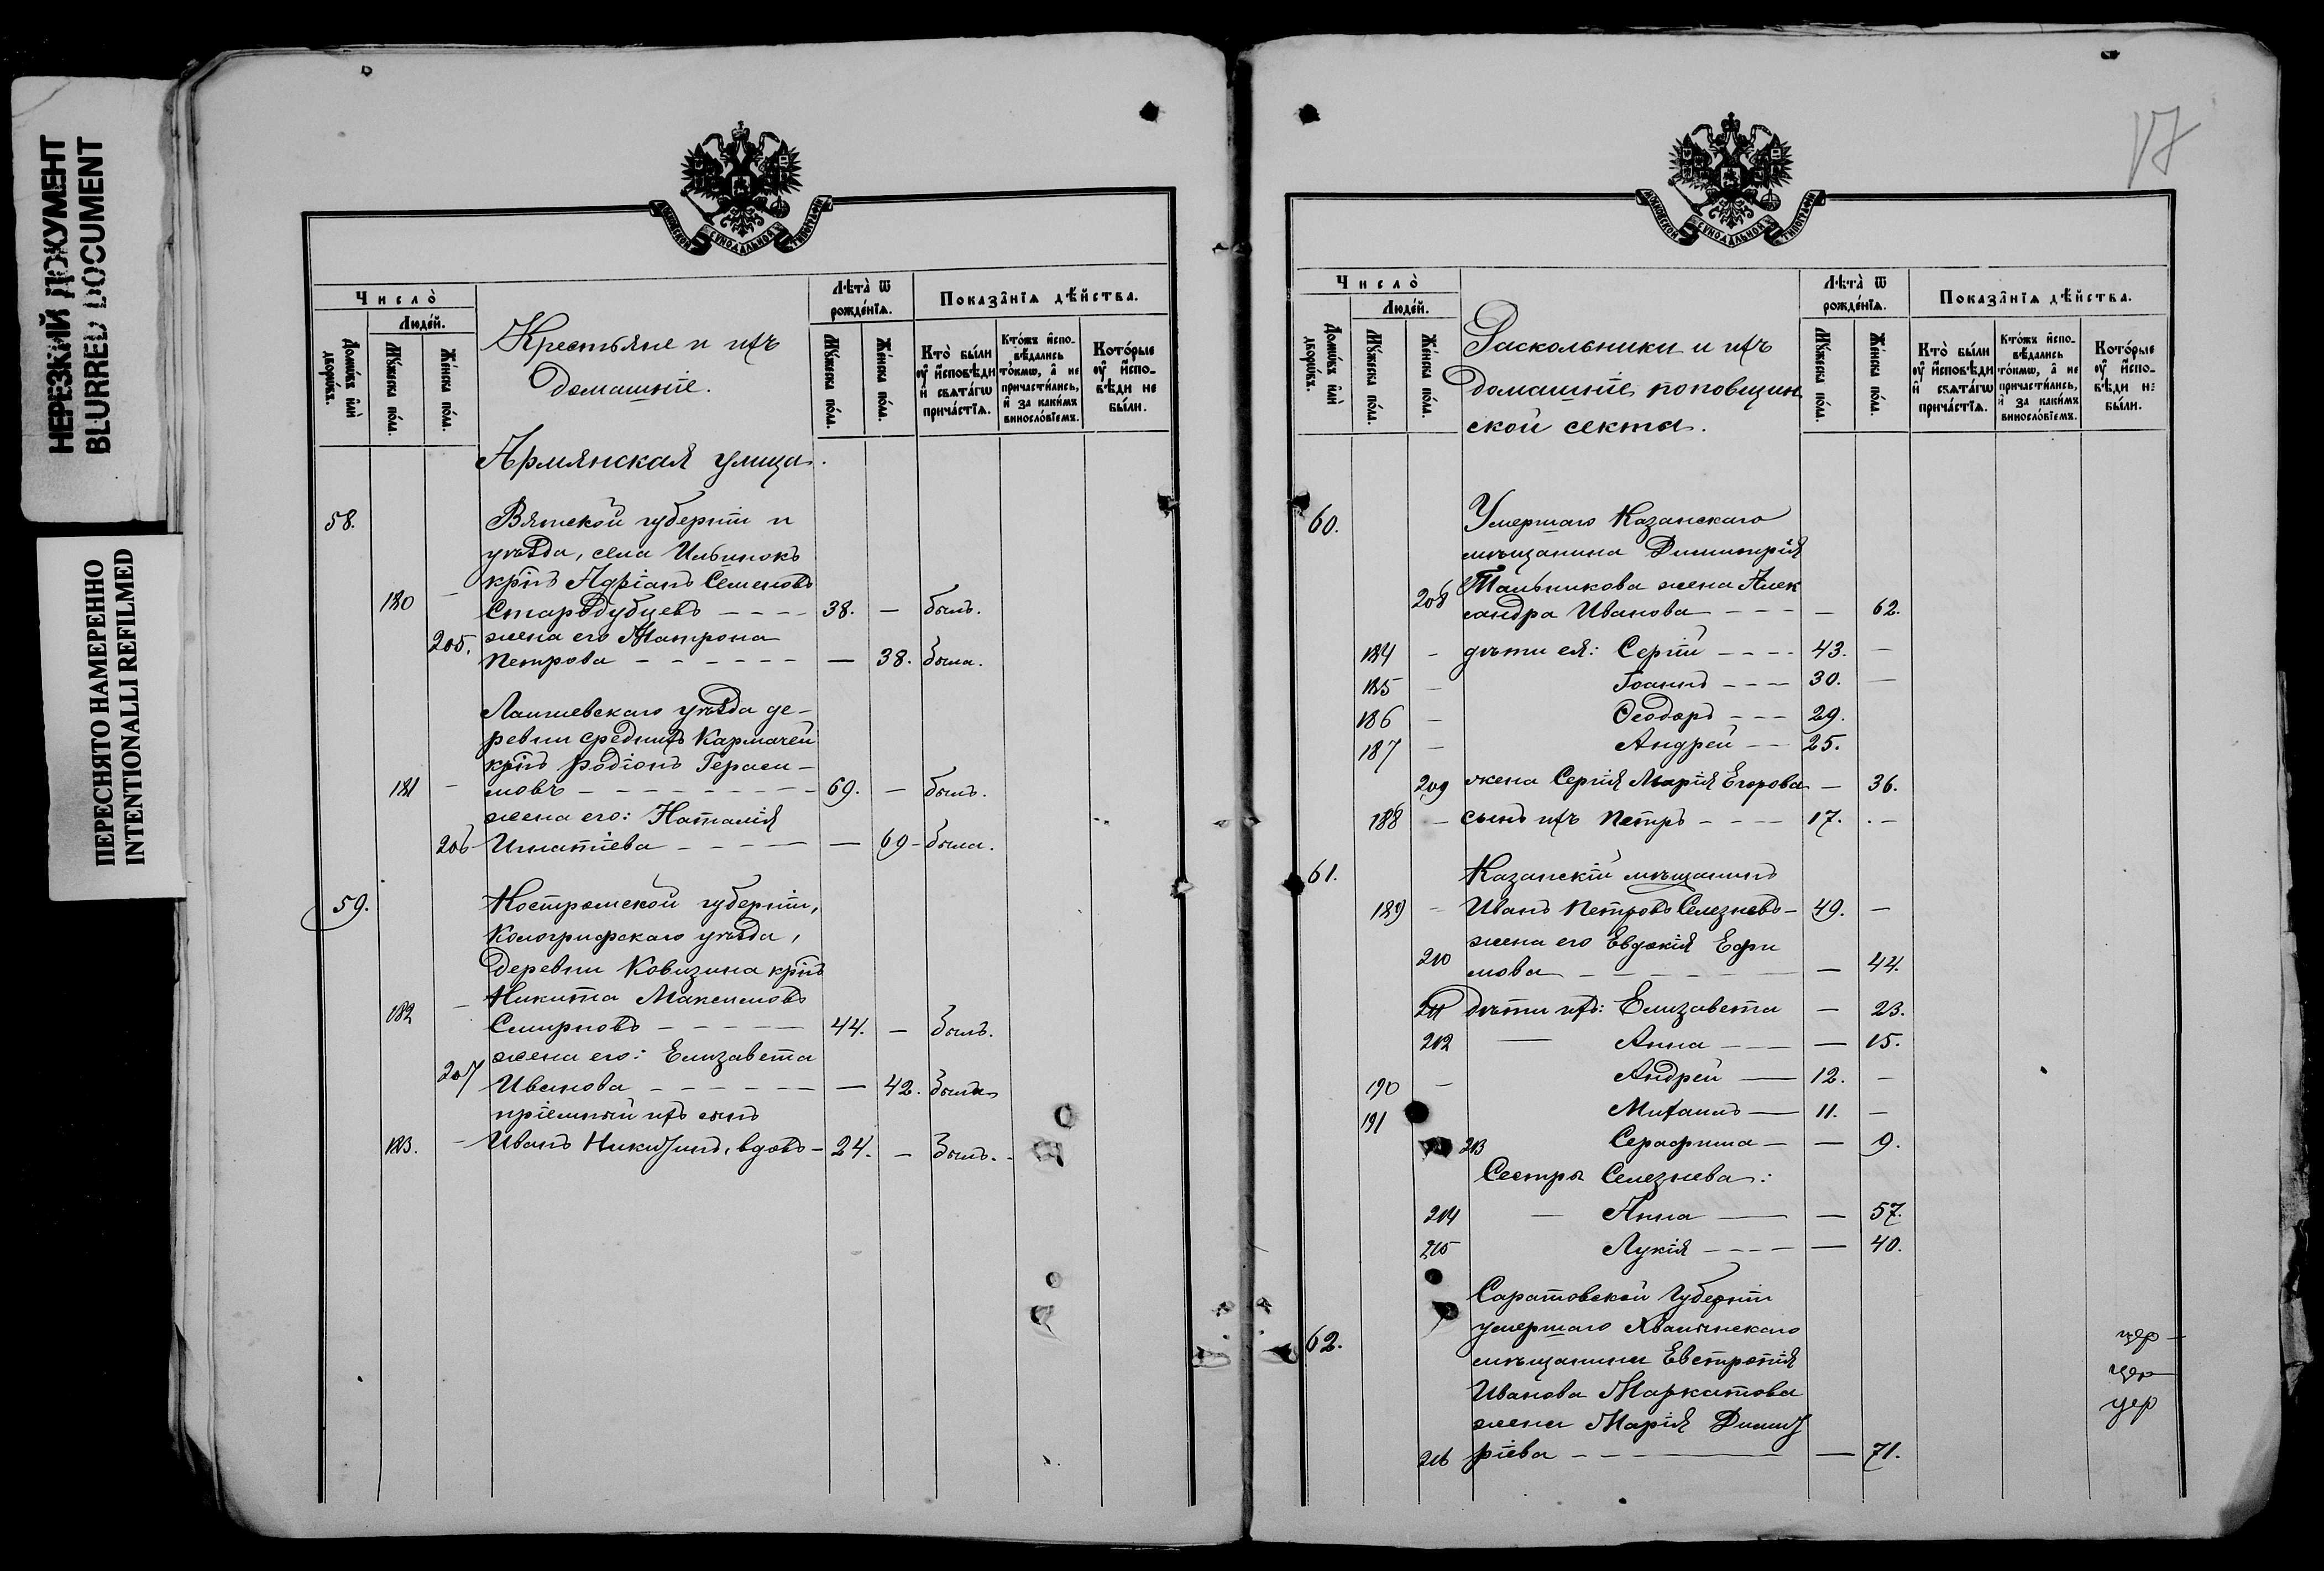 НЕРЕЗКИЙ ДОКУМЕНТ
BLURRED DOCUMENT
ПЕРЕСНЯТО НАМЕРЕННО
INTENTIONALLI REFILMED
МОСКОВСКОЙ СѴНОДАЛЬНОЙ ТИПОГРАФІИ
Число̀
Люде́й.
Домѡ́въ и҆лѝ дворѡ́въ.
Мꙋ́жеска по́ла.
Же́нска по́ла.
Крестьяне и ихъ
домашніе.
Лѣ́та ѿ рожде́нїѧ.
Мꙋ́жеска по́ла.
Же́нска по́ла.
Показа̑нїѧ дѣ́йства.
Кто̀ бы́ли ᲂу҆ и҆́сповѣди и҆ свѧта́гѡ прича́стїѧ.
Кто́жъ и҆спо-вѣ́дались то́кмѡ, а҆ не причасти́лись, и҆ за каки́мъ виносло́вїемъ.
Кото́рые ᲂу҆ и҆́спо-вѣди не бы́ли.
Армянская улица.
58. Вятской губерніи и
уѣзда, села Ильинокъ
крнъ Адріанъ Семеновъ
180 – Стародубцевъ – – – – 38. – былъ.
205. жена его Матрона
Петрова – – – – – – — 38. была.
Лаишевскаго уѣзда де-
ревни среднихъ Кармачей
крнъ Родіонъ Гераси-
181 – мовъ – – – – – – – – 69. – былъ.
жена его: Наталія
206 Игнатіева – – – – – — 69 – была.
59. Костромской губерніи,
Кологривскаго уѣзда,
деревни Ковизина крнъ
Никита Максимовъ
182 – Смирновъ – – – – – 44. – былъ.
жена его: Елизавета
207 Иванова – – – – – – — 42. была
пріемный ихъ сынъ
183. – Иванъ Никитинъ, вдовъ – 24. – былъ.
17
МОСКОВСКОЙ СѴНОДАЛЬНОЙ ТИПОГРАФІИ
Число̀
Люде́й.
Домѡ́въ и҆лѝ дворѡ́въ.
Мꙋ́жеска по́ла.
Же́нска по́ла.
Раскольники и ихъ
домашніе, поповщин
ской секты.
Лѣ́та ѿ рожде́нїѧ.
Мꙋ́жеска по́ла.
Же́нска по́ла.
Показа̑нїѧ дѣ́йства.
Кто̀ бы́ли ᲂу҆ и҆́сповѣди и҆ свѧта́гѡ прича́стїѧ.
Кто́жъ и҆спо-вѣ́дались то́кмѡ, а҆ не причасти́лись, и҆ за каки́мъ виносло́вїемъ.
Кото́рые ᲂу҆ и҆́спо-вѣди не бы́ли.
60. Умершаго Казанскаго
мѣщанина Димитрія
208 Тальникова жена Алек
сандра Иванова – – – — 62.
184 – дѣти ея: Сергій – – – – 43. –
185 – Іоаннъ – – – 30. –
186 – Ѳеодоръ – – – 29.
187 – Андрей – – 25.
209 жена Сергія Марія Егорова – 36.
188 – сынъ ихъ Петръ – – – – 17. –
61. Казанскій мѣщанинъ
189 – Иванъ Петровъ Селезневъ – 49. –
210 жена его Евдокія Ефи
мова – – – – – – — 44.
211 дѣти ихъ: Елизавета — 23.
212 — Анна – – – — 15.
190 – Андрей — 12. –
191 Михаилъ — 11. –
213 Серафима – — 9.
Сестры Селезнева:
214 — Анна — — 57.
215 Лукія – – – – — 40.
Саратовской губерніи
62. умершаго Хвалынскаго цер –
мѣщанина Евстратія цер
Иванова Маркитова цер
жена Марія Димит
216 ріева – – – — — 71.